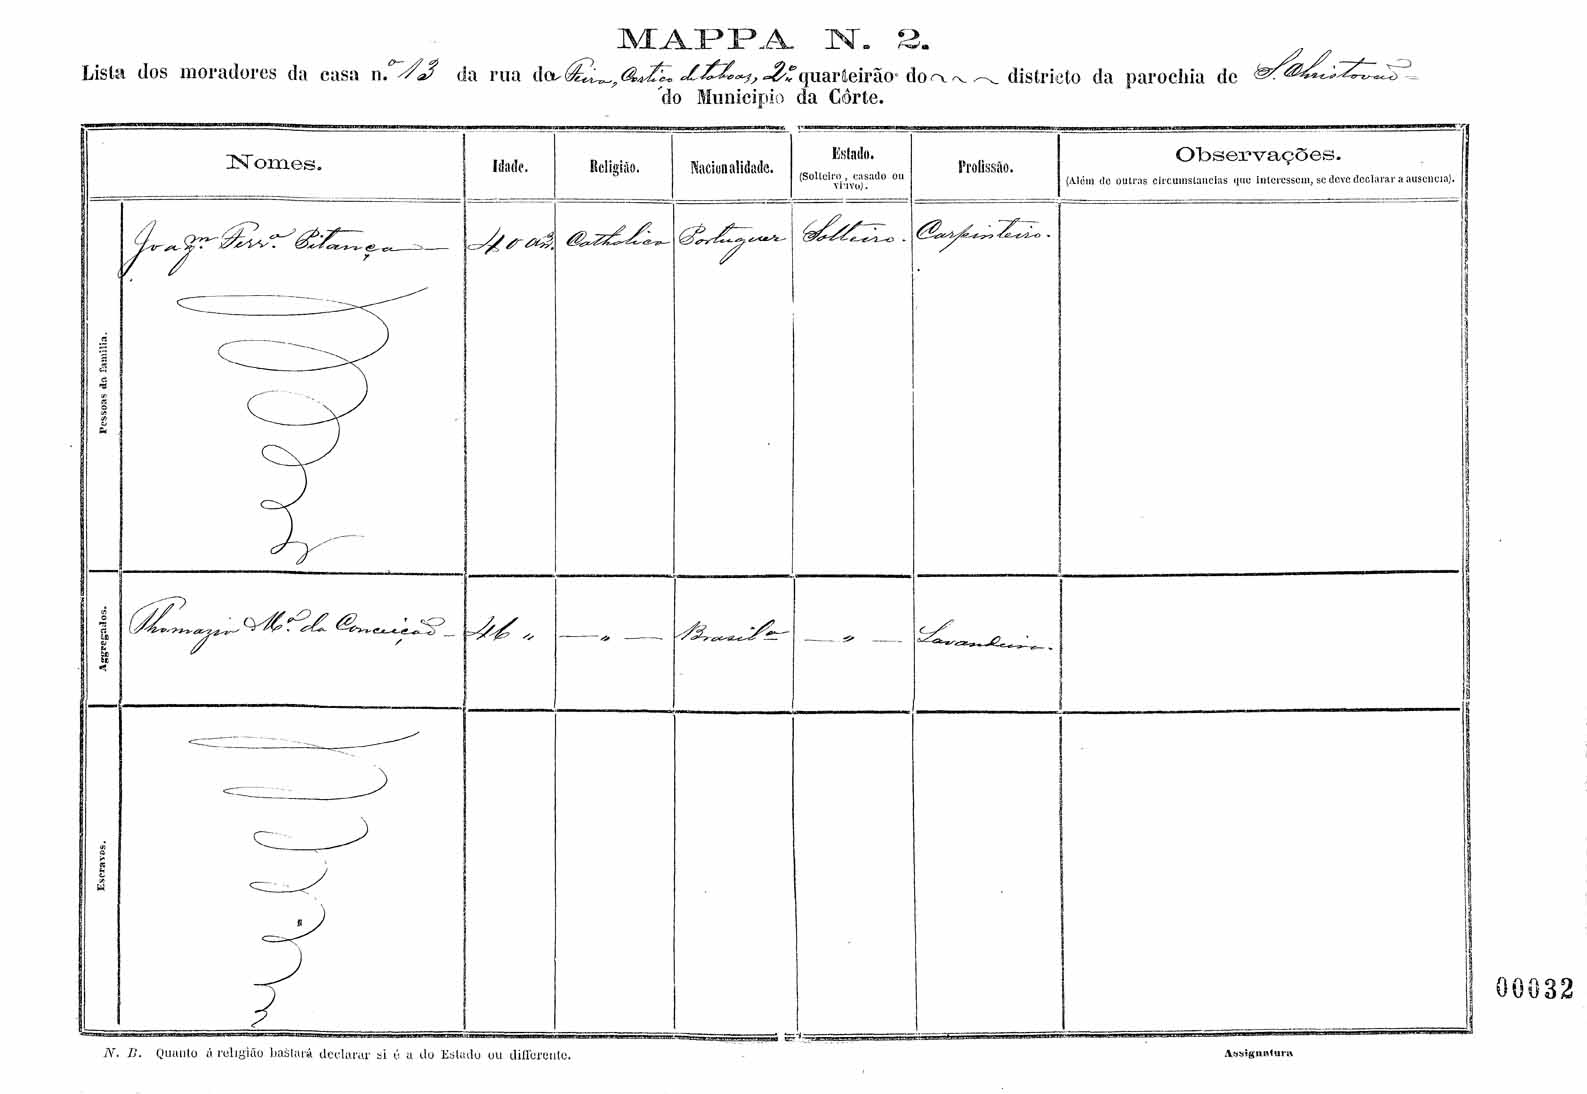 MAPPA N. 2.
Lista dos moradores da casa n.º 13 da rua da Feira, Cortiço de taboas, 2º quarteirão do districto da parochia de S. Christovão
do Municipio da Côrte.
Nomes. Idade. Religião. Nacionalidade. Estado. (Solteiro, casado ou viuvo). Profissão. Observações. (Além de outras circumstancias que interessem, se deve declarar a ausencia).
Pessoas da familia.
Joaqm. Ferrª. Pitança — 40 ans. Catholica Portuguez Solteiro. Carpinteiro.
Aggregados.
Thomazia Mª. da Conceição — 46 " — " — Brasilª — " — Lavandeira.
Escravos.
00032
N. B. Quanto á religião bastará declarar si é a do Estado ou differente.
Assignatura